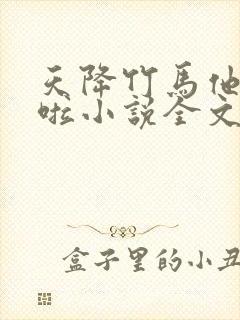 天降竹马他
啦小说全文
盒子里的小丑